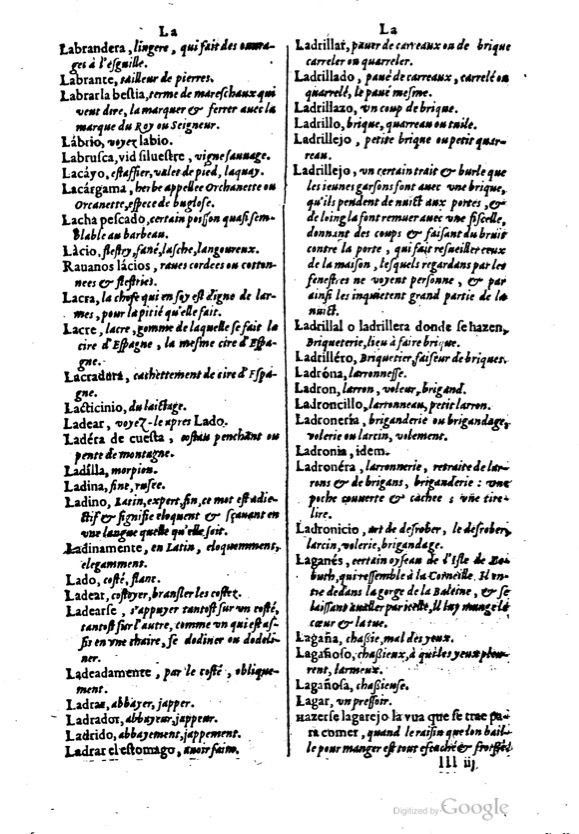 La
Labrandera, lingere, qui fait des ouura-
ges à l'esguille.
Labrante, tailleur de pierres.
Labrar la bestia, terme de mareschaux qui
veut dire, la marquer & ferrer avec la
marque du Roy ou Seigneur.
Lábrio, voyez labio.
Labrusca, vid siluestre, vigne sauuage.
Lacáyo, estaffier, valet de pied, laquay.
Lacárgama, herbe appellee Orchanette ou
Orcanette, espece de buglose.
Lacha pescado, certain poisson quasi sem-
blable au barbeau.
Làcio, flestry, fané, lasche, langoureux.
Rauanos lácios, raues cordees ou cotton-
nees & flestries.
Lacra, la chose qui en soy est digne de lar-
mes, pour la pitié qu'elle fait.
Lacre, lacre, gomme de laquelle se fait la
cire d'Espagne, la mesme cire d'Espa-
gne.
Lacradura, cachettement de cire d'Espa-
gne.
Lacticinio, du laictage.
Ladear, voyez-le apres Lado.
Ladéra de cuesta, costau penchant ou
pente de montagne.
Ladilla, morpion.
Ladina, fine, rusee.
Ladino, Latin, expert, fin, ce mot est adie-
ctif & signifie eloquent & sçauant en
vne langue quelle qu'elle soit.
Ladinamente, en Latin, eloquemment,
elegamment.
Lado, costé, flanc.
Ladear, costoyer, bransler les costez.
Ladearse, s'appuyer tantost sur vn costé,
tantost sur l'autre, comme vn qui est as-
sis en vne chaire, se dodiner ou dodeli-
ner.
Ladeadamente, par le costé, oblique-
ment.
Ladrar, abbayer, japper.
Ladrador, abbayeur, jappeur.
Ladrido, abbayement, jappement.
Ladrar el estomago, auoir faim.
La
Ladrillar, pauer de carreaux ou de brique
carreler ou quarreler.
Ladrillado, paué de carreaux, carrelé ou
quarrelé, le paué mesme.
Ladrillazo, vn coup de brique.
Ladrillo, brique, quarreau ou tuile.
Ladrillejo, petite brique ou petit quar-
reau.
Ladrillejo, vn certain trait & burle que
les ieunes garsons font auec vne brique,
qu'ils pendent de nuict aux portes, &
de loing la font remuer auec vne fiscelle,
donnant des coups & faisant du bruit
contre la porte, qui fait resueiller ceux
de la maison, lesquels regardans par les
fenestres ne voyent personne, & par
ainsi les inquietent grand partie de la
nuict.
Ladrillal o ladrillera donde se hazen,
Briqueterie, lieu à faire brique.
Ladrilléro, Briquetier, faiseur de briques.
Ladróna, larronnesse.
Ladron, larron, voleur, brigand.
Ladroncillo, larronneau, petit larron.
Ladroneria, briganderie ou brigandage,
volerie ou larcin, volement.
Ladronia, idem.
Ladronéra, larronnerie, retraite de lar-
rons & de brigans, briganderie: vne
poche couuerte & cachee; vne tire-
lire.
Ladronicio, art de desrober, le desrober,
larcin, volerie, brigandage.
Laganés, certain oyseau de l'Isle de
qui ressemble à la Corneille. Il en-
tre dedans la gorge de la Baleine, & se
laissant aualler par icelle, il luy mange le
cœur & la tue.
Lagaña, chaßie, mal des yeux.
Lagañoso, chaßieux, à qui les yeux pleu-
rent, larmeux.
Lagañosa, chaßieuse.
Lagar, vn pressoir.
Hazerse lagarejo la vua que se trae pa-
ra comer, quand le raisin que lon bail-
le pour manger est tout escaché & froissé
lll iij
Digitized by Google